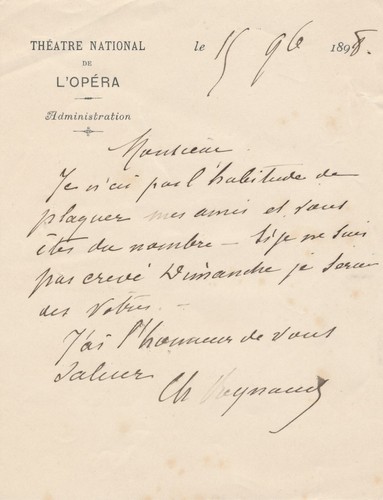 THÉATRE NATIONAL
DE
L'OPÉRA
Administration
le 15 9bre 1898.
Monsieur
Je n'ai pas l'habitude de
plaquer mes amis et vous
êtes du nombre – Si je ne suis
pas crevé Dimanche je serai
des Vôtres. –
J'ai l'honneur de vous
saluer
Ch